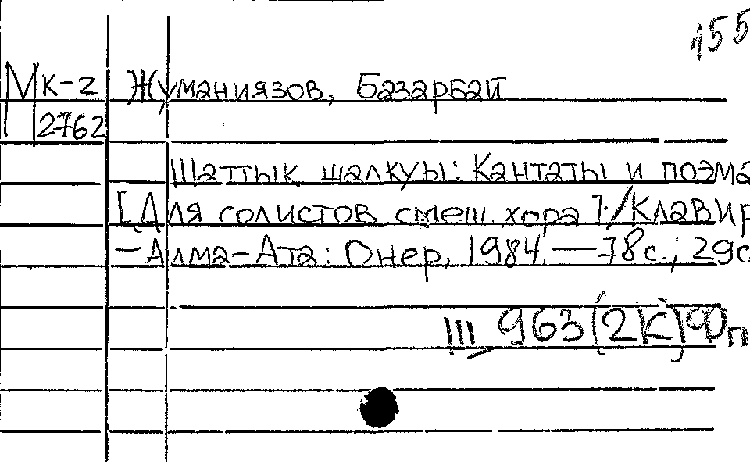 155
Мк-2 Жуманиязов, Базарбай
2762
Шаттык шалкуы: Кантаты и поэма
[Для солистов смеш. хора]./Клавир
— Алма-Ата: Онер, 1984. — 78с.; 29с
III 963(2К)Фп